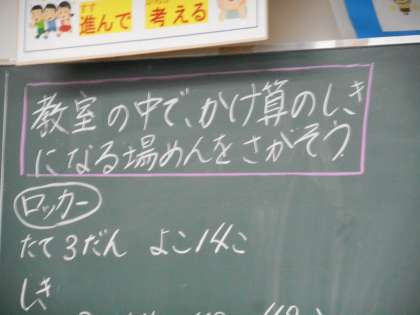 進んで 考える
教室の中で、かけ算のしき
になる場めんをさがそう
ロッカー
たて3だん よこ14こ
しき